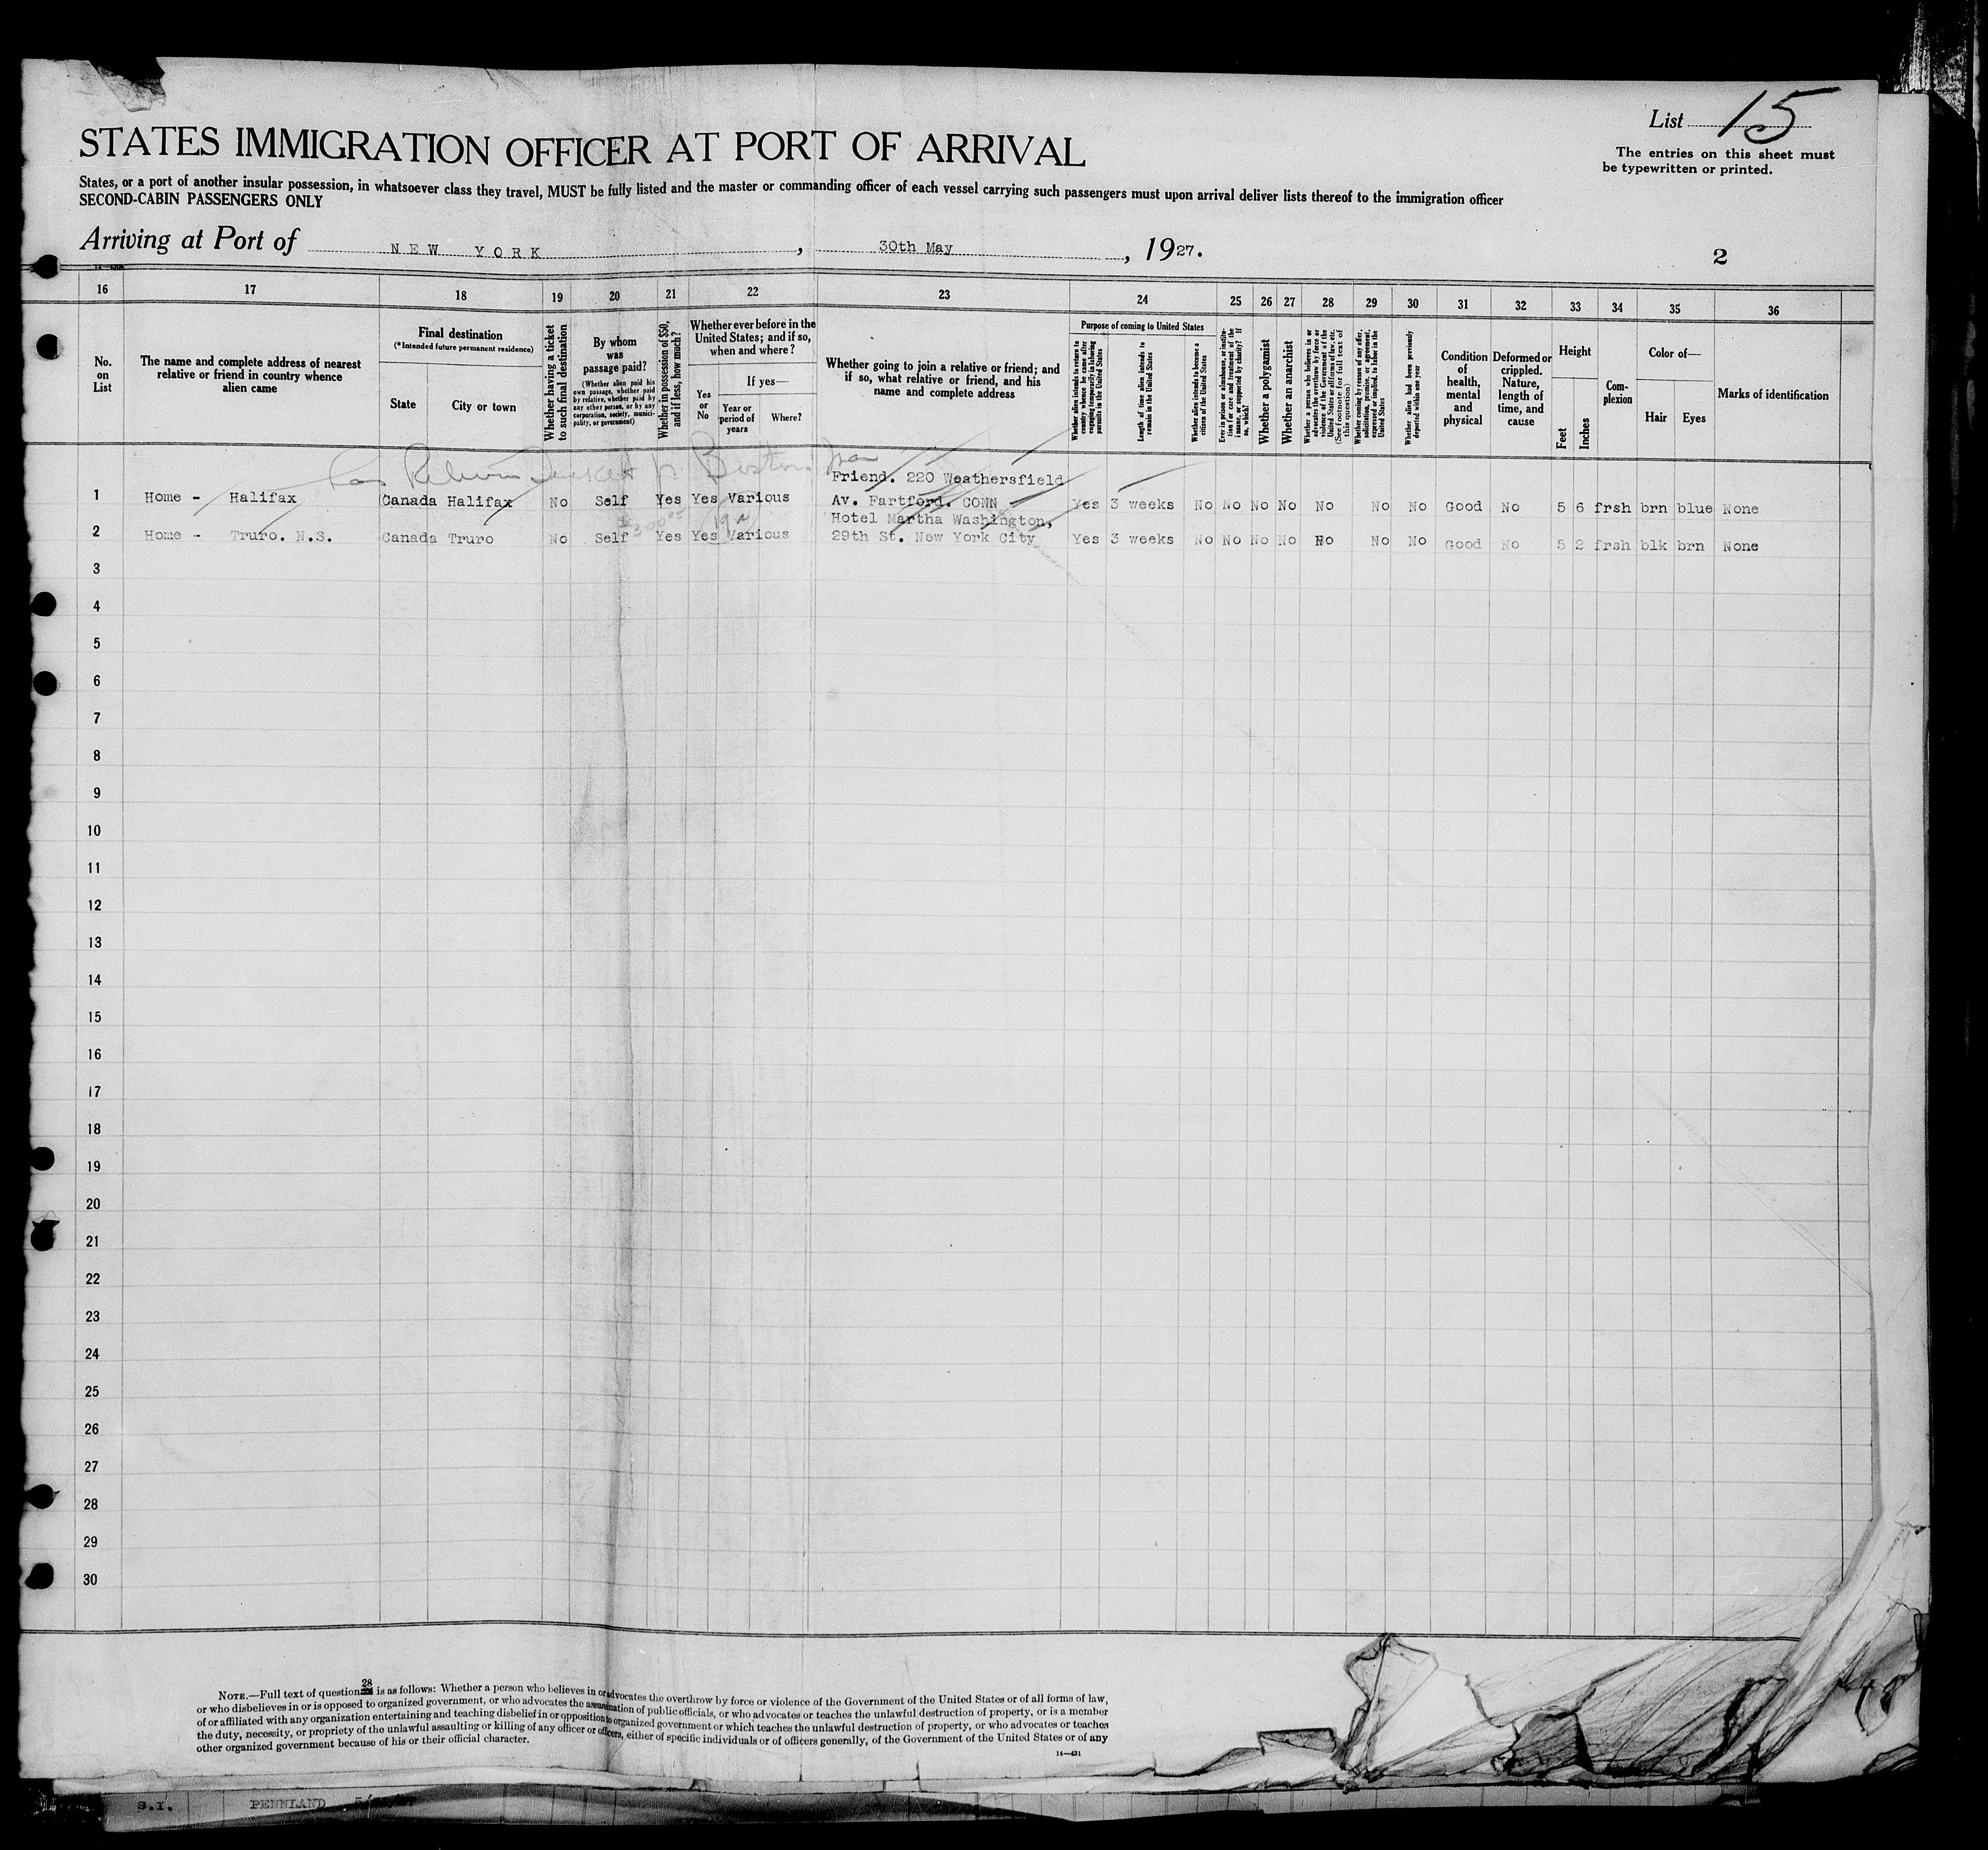 List 15
The entries on this sheet must
be typewritten or printed.
STATES IMMIGRATION OFFICER AT PORT OF ARRIVAL
States, or a port of another insular possession, in whatsoever class they travel, MUST be fully listed and the master or commanding officer of each vessel carrying such passengers must upon arrival deliver lists thereof to the immigration officer
SECOND-CABIN PASSENGERS ONLY
Arriving at Port of NEW YORK, 30th May, 1927.
2
16 17 18 19 20 21 22 23 24 25 26 27 28 29 30 31 32 33 34 35 36
No. on List
The name and complete address of nearest relative or friend in country whence alien came
Final destination
(*Intended future permanent residence)
State
City or town
Whether having a ticket to such final destination
By whom was passage paid?
(Whether alien paid his own passage, whether paid by relative, whether paid by any other person, or by any corporation, society, municipality, or government)
Whether in possession of $50, and if less, how much?
Whether ever before in the United States; and if so, when and where?
Yes or No
If yes—
Year or period of years
Where?
Whether going to join a relative or friend; and if so, what relative or friend, and his name and complete address
Purpose of coming to United States
Whether alien intends to return to country whence he came after engaging temporarily in laboring pursuits in the United States
Length of time alien intends to remain in the United States
Whether alien intends to become a citizen of the United States
Ever in prison or almshouse, or institution for care and treatment of the insane, or supported by charity? If so, which?
Whether a polygamist
Whether an anarchist
Whether a person who believes in or advocates the overthrow by force or violence of the Government of the United States or all forms of law, etc. (See footnote for full text of this question)
Whether coming by reason of any offer, solicitation, promise, or agreement, expressed or implied, to labor in the United States
Whether alien had been previously deported within one year
Condition of health, mental and physical
Deformed or crippled. Nature, length of time, and cause
Height
Feet
Inches
Com-plexion
Color of—
Hair
Eyes
Marks of identification
Boston
Friend. 220 Weathersfield
1 Home - Halifax Canada Halifax No Self Yes Yes Various Av. Fartford. CONN Yes 3 weeks No No No No No No No Good No 5 6 frsh brn blue None
Hotel Martha Washington,
2 Home - Truro. N.S. Canada Truro No Self Yes Yes Various 29th St. New York City Yes 3 weeks No No No No No No No Good No 5 2 frsh blk brn None
3
4
5
6
7
8
9
10
11
12
13
14
15
16
17
18
19
20
21
22
23
24
25
26
27
28
29
30
NOTE.—Full text of question 28 is as follows: Whether a person who believes in or advocates the overthrow by force or violence of the Government of the United States or of all forms of law,
or who disbelieves in or is opposed to organized government, or who advocates the assassination of public officials, or who advocates or teaches the unlawful destruction of property, or is a member
of or affiliated with any organization entertaining and teaching disbelief in or opposition to organized government or which teaches the unlawful destruction of property, or who advocates or teaches
the duty, necessity, or propriety of the unlawful assaulting or killing of any officer or officers, either of specific individuals or of officers generally, of the Government of the United States or of any
other organized government because of his or their official character.
14—431
S.I. PENNLAND